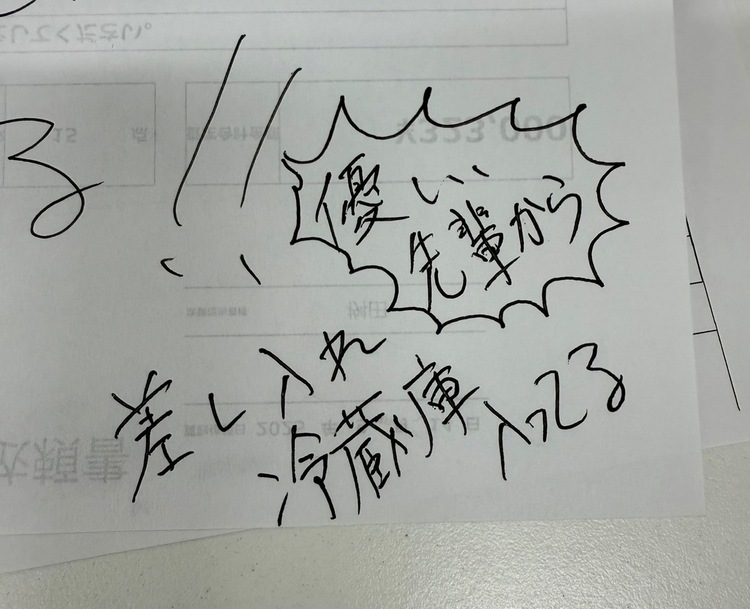 る!!
優しい
先輩から
差し入れ
冷蔵庫入ってる